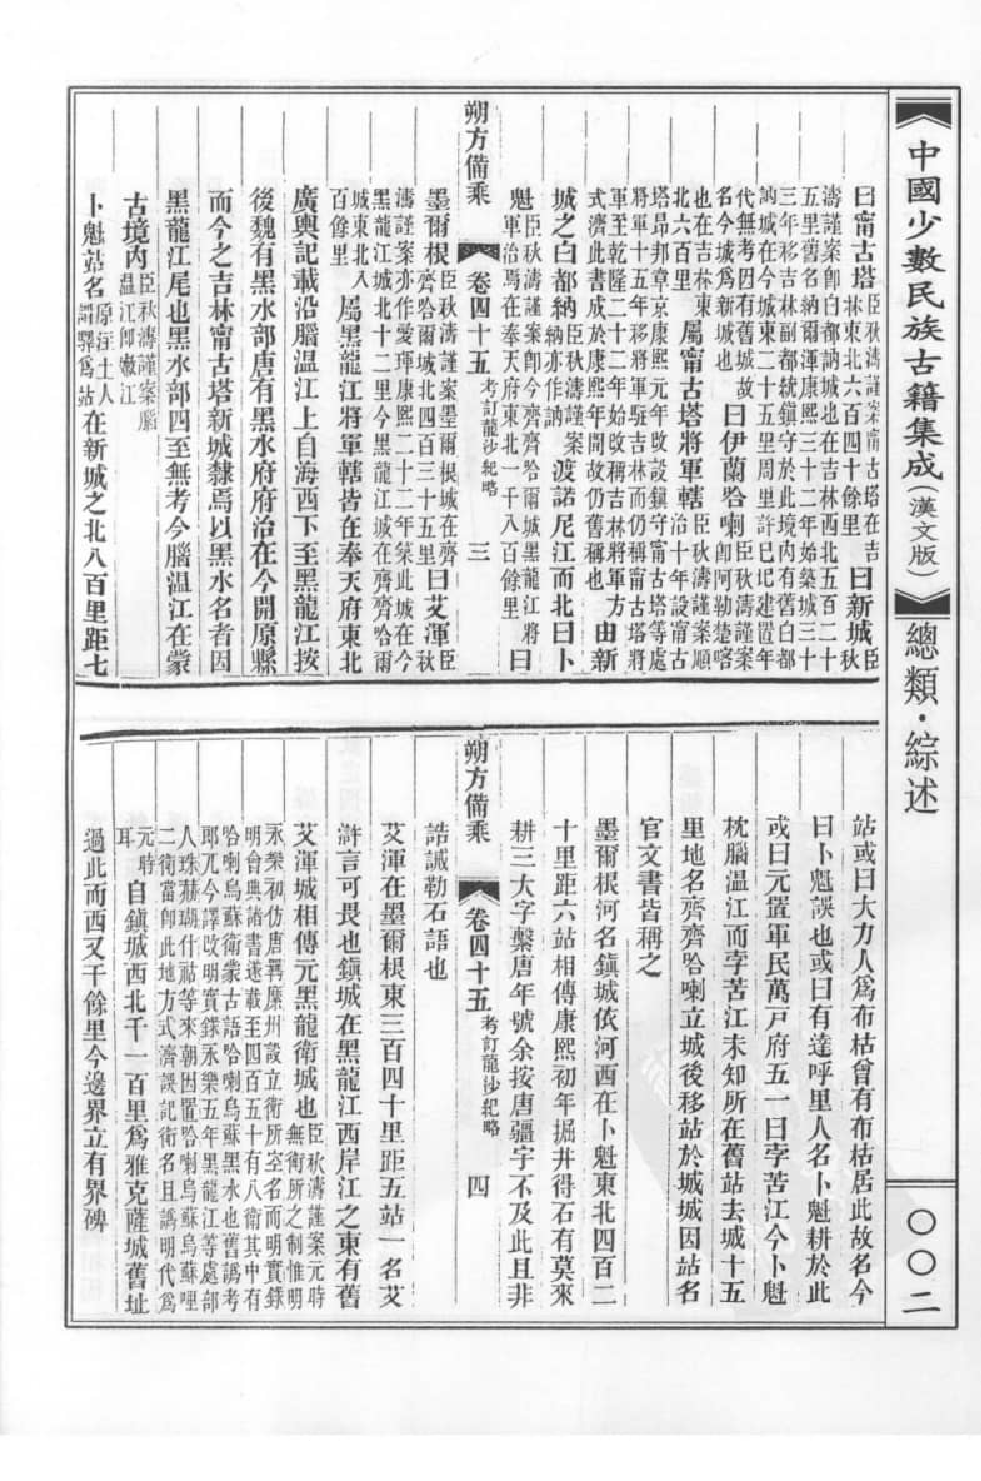 中國少數民族古籍集成（漢文版）
總類·綜述
〇〇二
曰甯古塔臣秋濤謹案甯古塔在吉林東北六百四十餘里曰新城臣秋
濤謹案卽白都訥城也在吉林西北五百二十
五里舊名納爾渾康熙三十二年始築城三十
三年移吉林副都統鎮守於此境內有舊白都
訥城在今城東二十五里周里許已圮建置年
代無考因有舊城故名今城爲新城也曰伊蘭哈喇臣秋濤謹案卽阿勒楚喀
也在吉林東北六百里屬甯古塔將軍轄臣秋濤謹案順治十年設甯古
塔昂邦章京康熙元年改設鎮守甯古塔等處
將軍十五年移將軍駐吉林而仍稱甯古塔將
軍至乾隆二十二年始改稱吉林將軍方
式濟此書成於康熙年間故仍舊稱也由新
城之白都納臣秋濤謹案納亦作訥渡諾尼江而北曰卜
魁臣秋濤謹案卽今齊齊哈爾城黑龍江將軍治焉在奉天府東北一千八百餘里曰
朔方備乘 卷四十五 考訂龍沙紀略 三
墨爾根臣秋濤謹案墨爾根城在齊齊哈爾城北四百三十五里曰艾渾臣秋
濤謹案亦作愛琿康熙二十二年築此城在今
黑龍江城北十二里今黑龍江城在齊齊哈爾
城東北八百餘里屬黑龍江將軍轄皆在奉天府東北
廣輿記載沿腦溫江上自海西下至黑龍江按
後魏有黑水部唐有黑水府府治在今開原縣
而今之吉林甯古塔新城隸焉以黑水名者因
黑龍江尾也黑水部四至無考今腦溫江在蒙
古境內臣秋濤謹案腦溫江卽嫩江
卜魁站名原注土人謂驛爲站在新城之北八百里距七
站或曰大力人爲布枯曾有布枯居此故名今
曰卜魁誤也或曰有達呼里人名卜魁耕於此
或曰元置軍民萬戸府五一曰孛苦江今卜魁
枕腦溫江而孛苦江未知所在舊站去城十五
里地名齊齊哈喇立城後移站於城城因站名
官文書皆稱之
墨爾根河名鎮城依河西在卜魁東北四百二
十里距六站相傳康熙初年掘井得石有莫來
耕三大字繫唐年號余按唐疆宇不及此且非
誥誡勒石語也
朔方備乘 卷四十五 考訂龍沙紀略 四
艾渾在墨爾根東三百四十里距五站一名艾
滸言可畏也鎮城在黑龍江西岸江之東有舊
艾渾城相傳元黑龍衛城也臣秋濤謹案元時無衛所之制惟明
永樂初仿唐羈縻州設立衛所空名而明實錄
明會典諸書遞載至四百五十有八衛其中有
哈喇烏蘇衛蒙古語哈喇烏蘇黑水也舊譌考
郎兀今譯改明實錄永樂五年黑龍江等處部
人珠赫瑚什祜等來朝因置哈喇烏蘇烏蘇哩
二衛當卽此地方式濟誤記衛名且譌明代爲
元時耳自鎮城西北千一百里爲雅克薩城舊址
過此而西又千餘里今邊界立有界碑